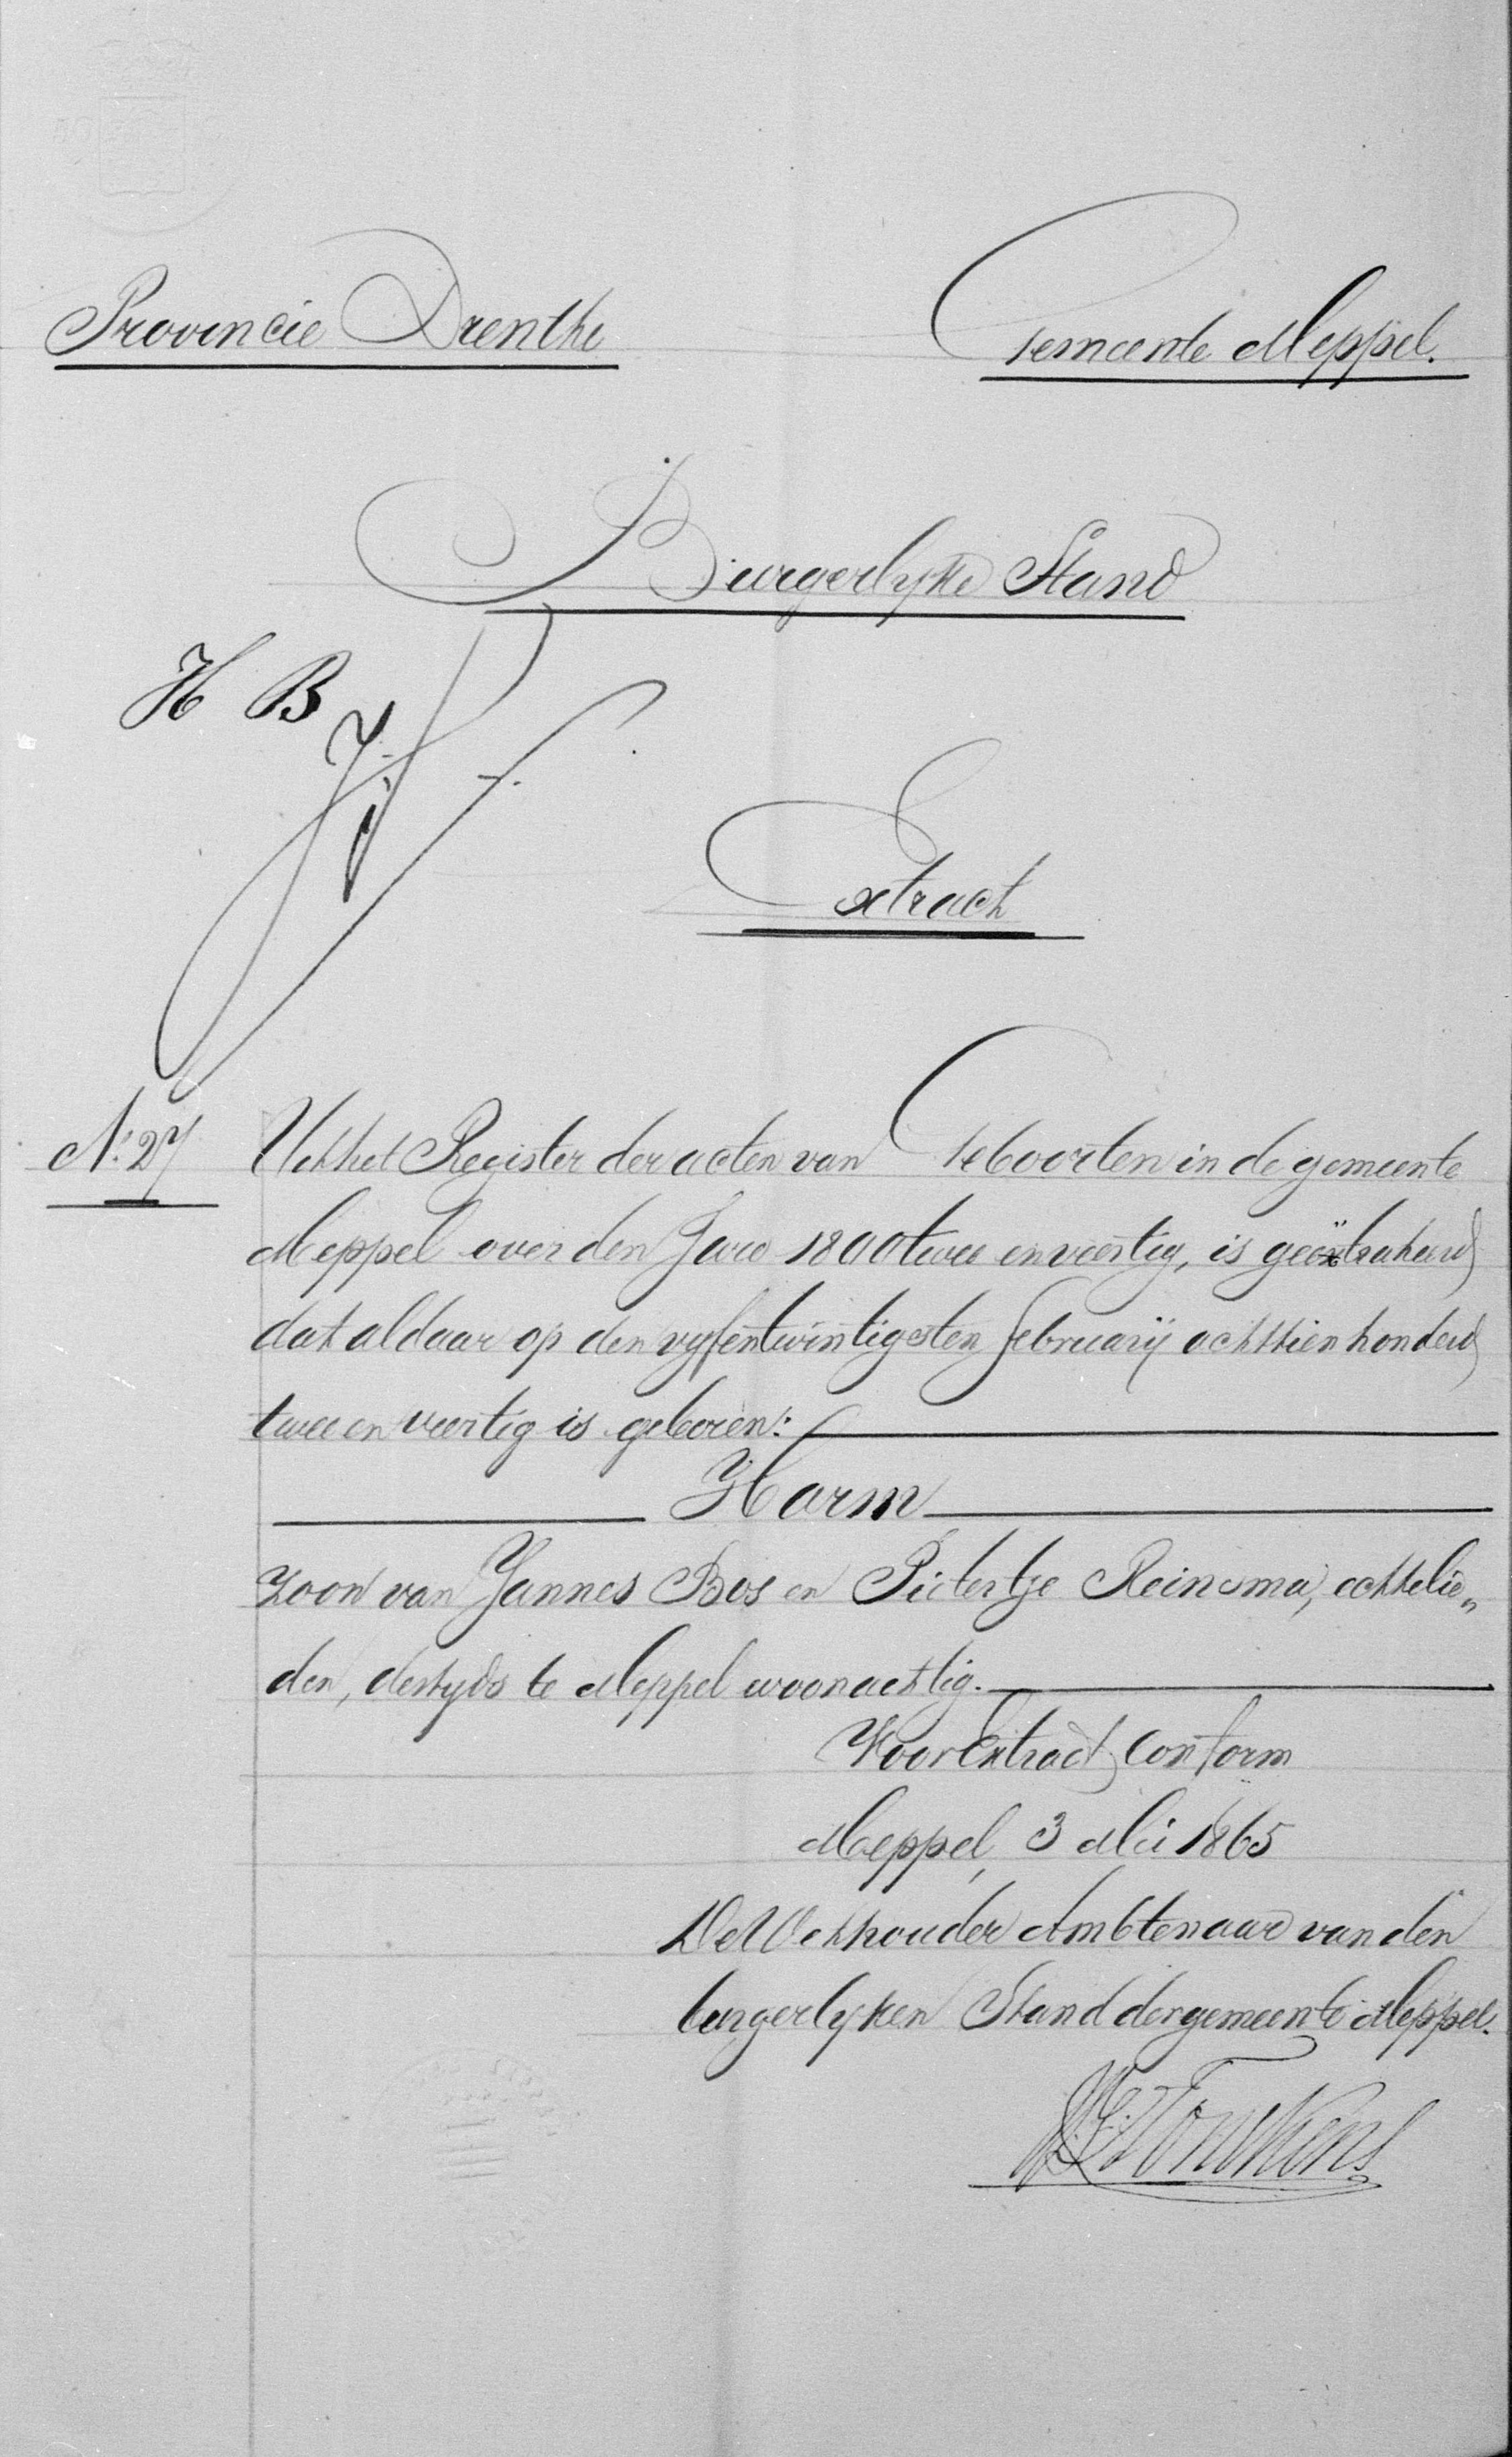 Provincie Drenthe
Gemeente Meppel.
Burgerlyke Stand
H B
Extract
N.º 27
Uit het Register der acten van Geboorten in de gemeente
Meppel over den Jare 1800 twee en veertig, is geëxtraheerd
dat aldaar op den vyfentwintigsten february achttien honderd
twee en veertig is geboren:
Harm
zoon van Jannes Bos en Pietertje Reinsma, echtelie„
den, destyds te Meppel woonachtig.
Voor Extract Conform
Meppel, 3 Mei 1865
De Wethouder Ambtenaar van den
burgerlyken Stand der gemeente Meppel.